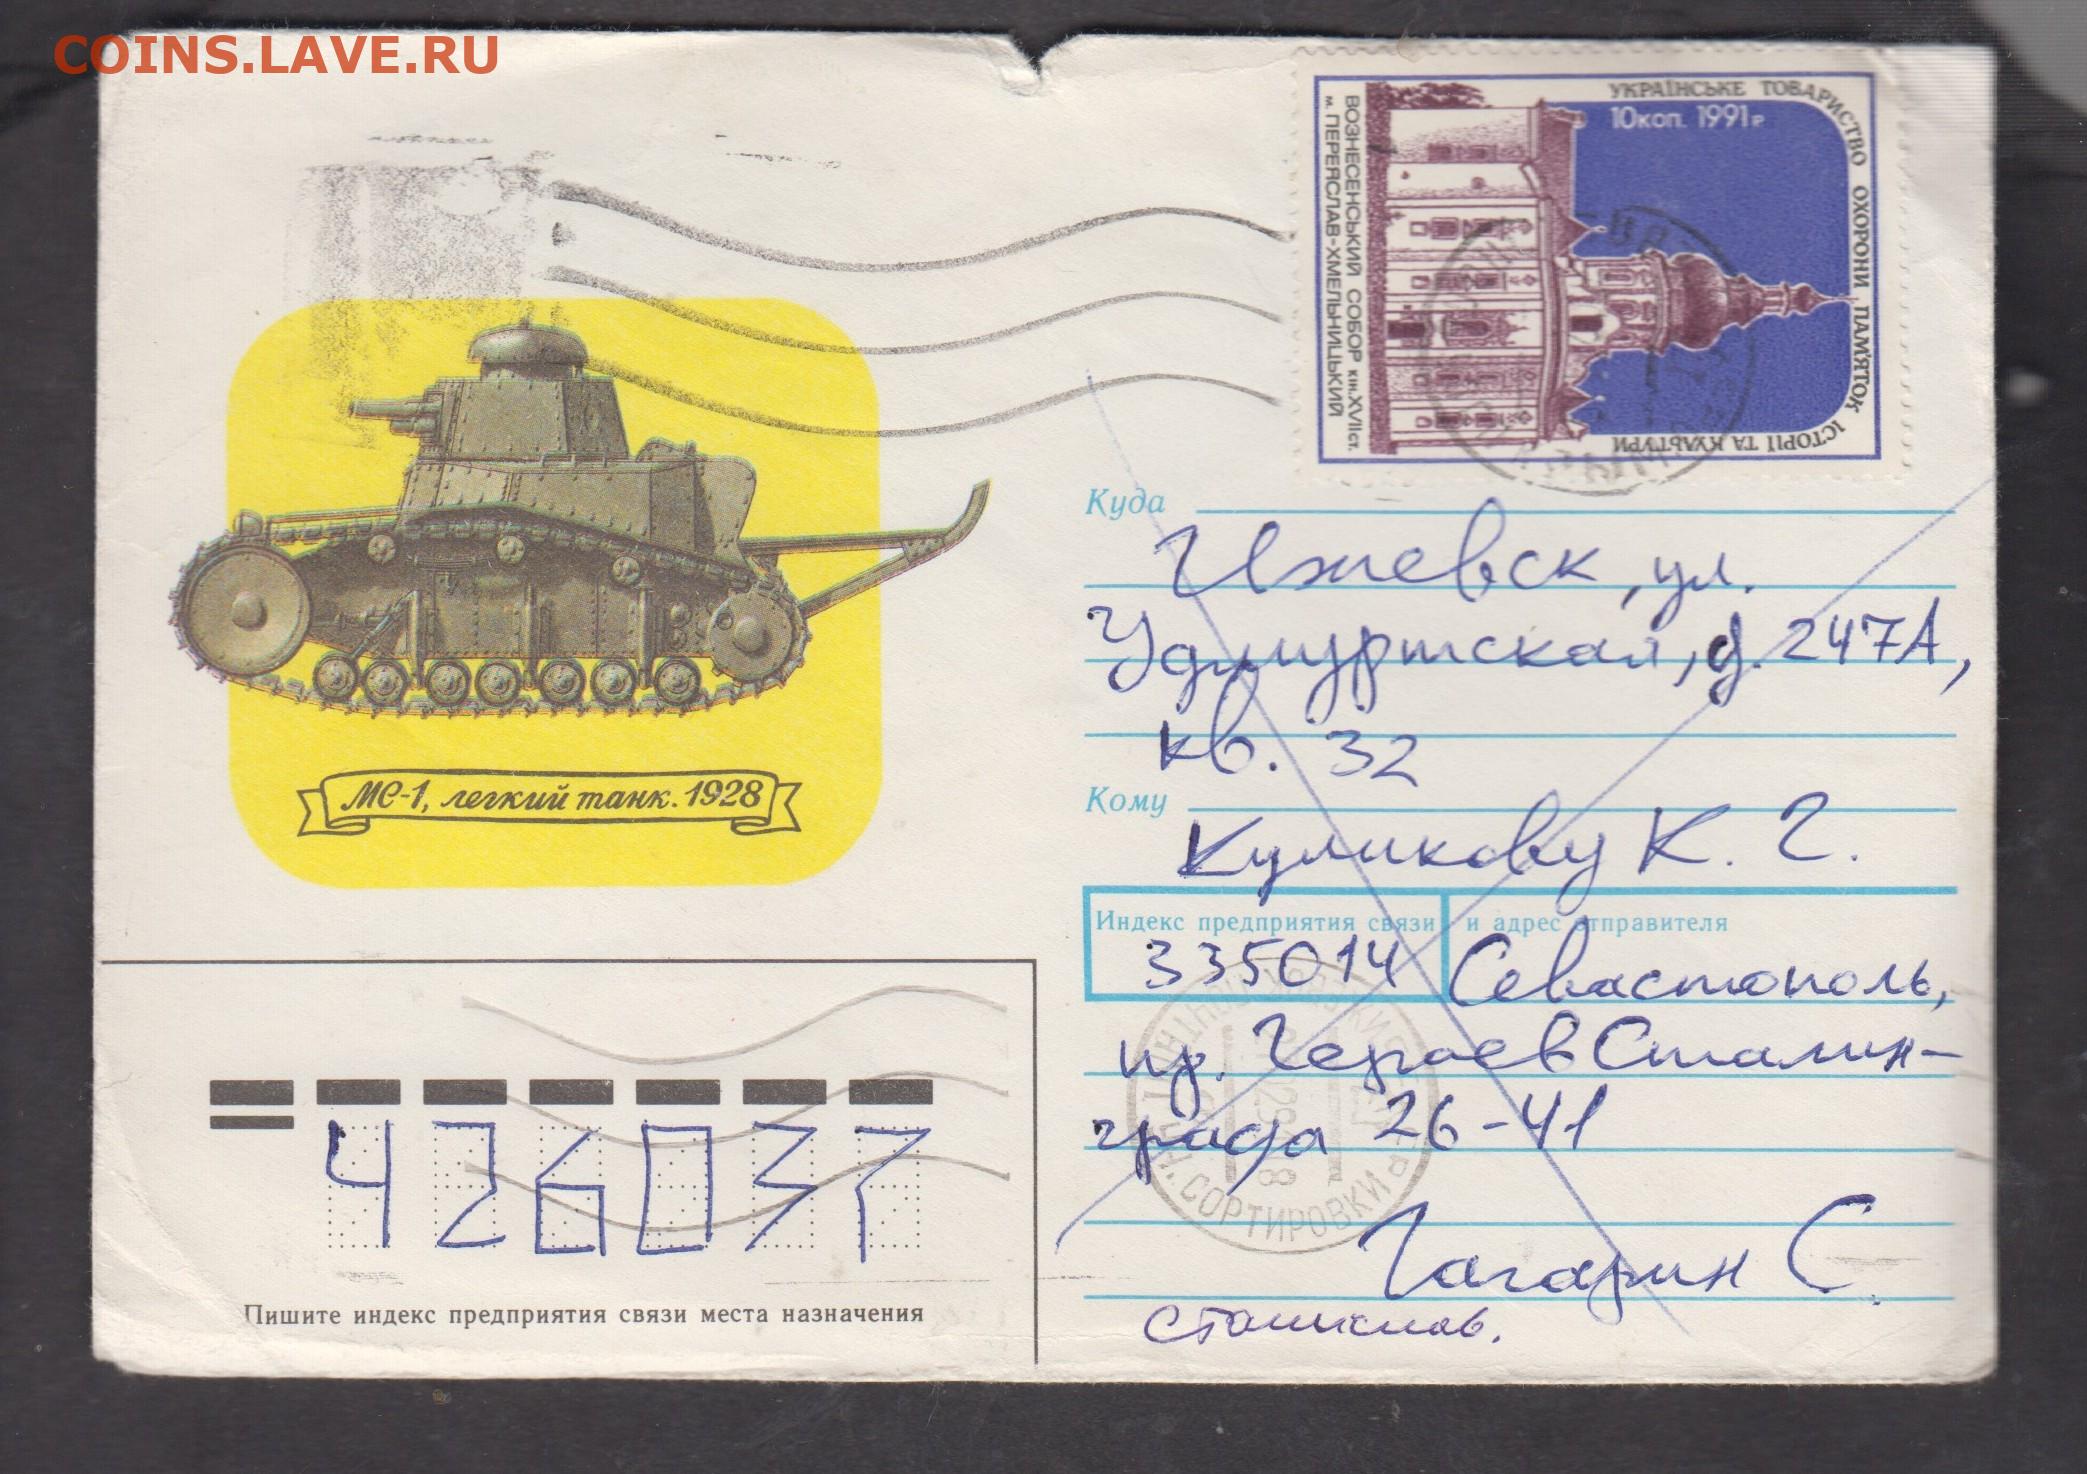 COINS.LAVE.RU
УКРАЇНСЬКЕ ТОВАРИСТВО ОХОРОНИ ПАМ'ЯТОК ІСТОРІЇ ТА КУЛЬТУРИ
10 коп. 1991 р
ВОЗНЕСЕНСЬКИЙ СОБОР КІН. XVII СТ.
м. ПЕРЕЯСЛАВ-ХМЕЛЬНИЦЬКИЙ
МС-1, легкий танк. 1928
Куда
Ижевск, ул.
Удмуртская, д. 247А,
кв. 32
Кому
Куликову К. Г.
Индекс предприятия связи и адрес отправителя
335014 Севастополь,
пр. Героев Сталин-
града 26-41
СОРТИРОВКИ
Гагарин С.
Станислав.
426037
Пишите индекс предприятия связи места назначения